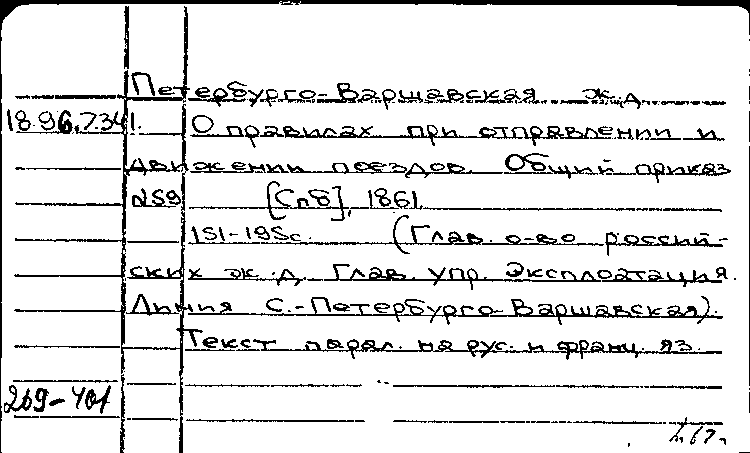 Петербурго-Варшавская ж.д.
18.96.7.341. О правилах при отправлении и
движении поездов. Общий приказ
259 [Спб], 1861.
151-195с. (Глав. о-во россий-
ских ж.д. Глав. упр. Эксплоатация.
Линия С.-Петербурго-Варшавская).
Текст парал. на рус. и франц. яз.
269-401